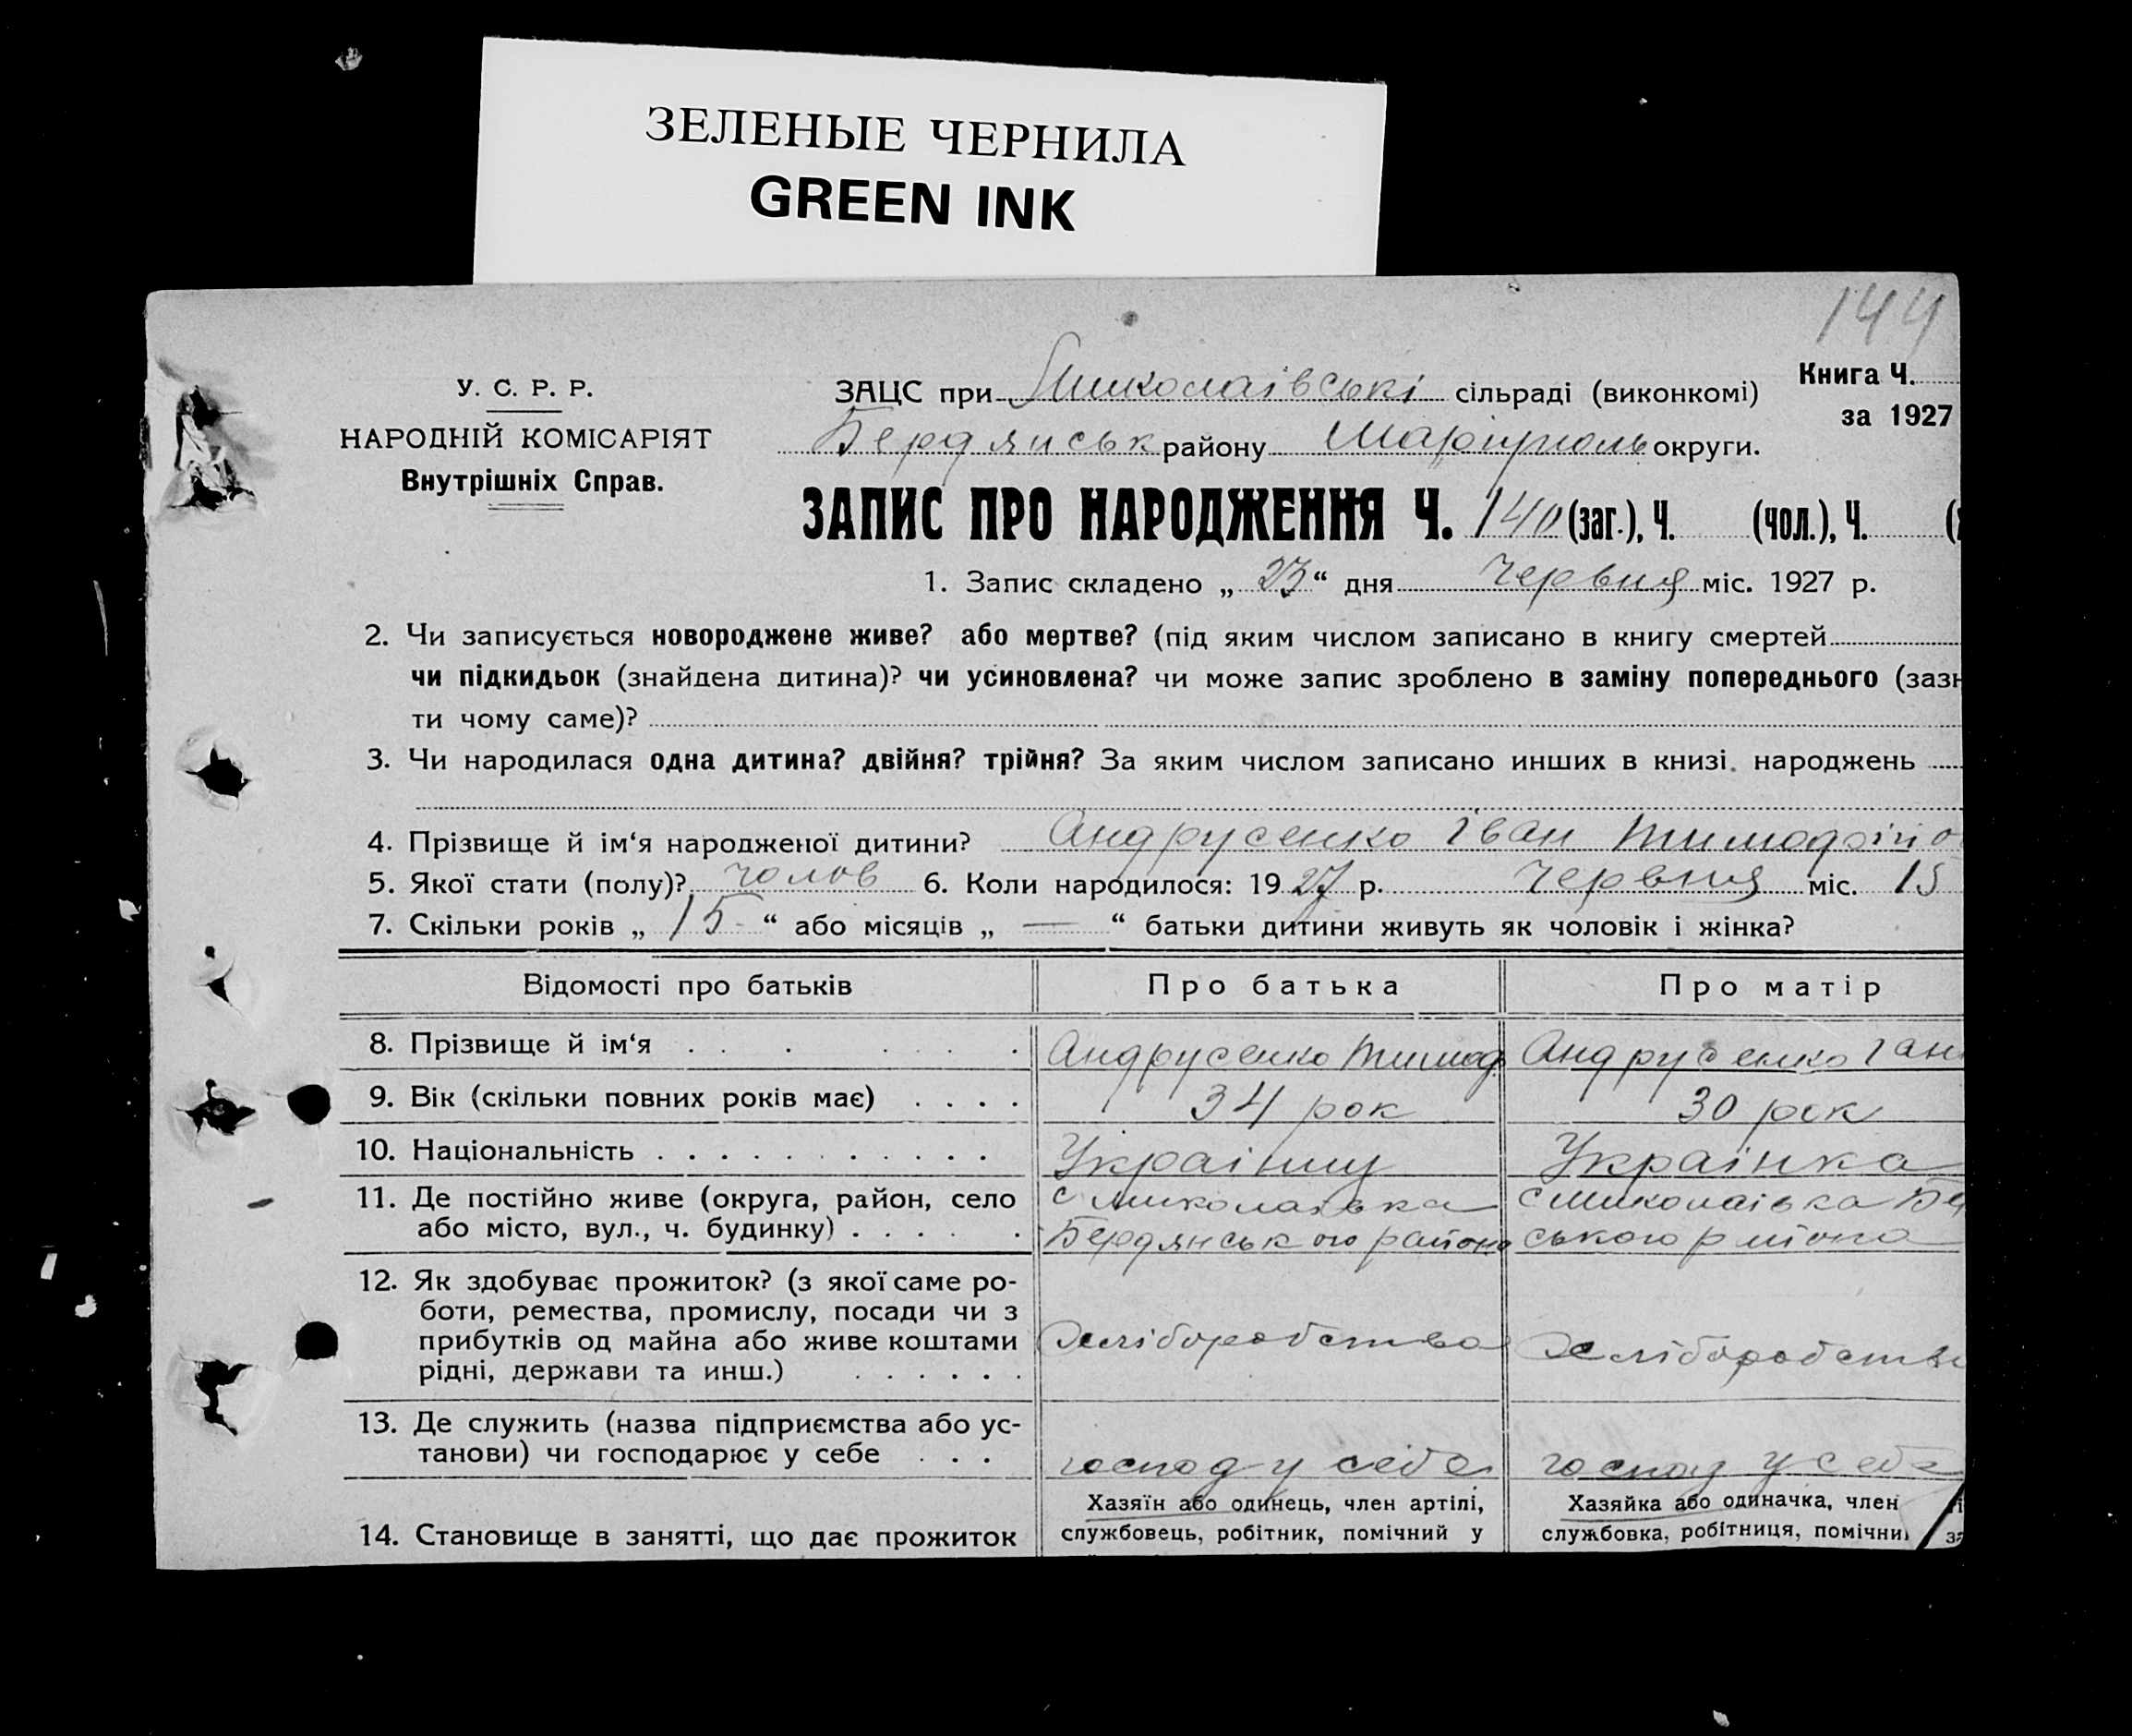 ЗЕЛЕНЫЕ ЧЕРНИЛА
GREEN INK
144
У. С. Р. Р.
НАРОДНІЙ КОМІСАРІЯТ
Внутрішніх Справ.
ЗАЦС при Миколаівські сільраді (виконкомі)
Книга Ч.
за 1927
Бердянськ району Маріуполь округи.
ЗАПИС ПРО НАРОДЖЕННЯ Ч. 140 (заг.), Ч. (чол.), Ч. (
1. Запис складено „ 23 “ дня Червня міс. 1927 р.
2. Чи записується новороджене живе? або мертве? (під яким числом записано в книгу смертей
чи підкидьок (знайдена дитина)? чи усиновлена? чи може запис зроблено в заміну попереднього (заз
ти чому саме)?
3. Чи народилася одна дитина? двійня? трійня? За яким числом записано инших в книзі народжень
4. Прізвище й ім‘я народженої дитини? Андрусенко Іван Тимофійо
5. Якої стати (полу)? чолов 6. Коли народилося: 19 27 р. Червня міс. 15
7. Скільки років „ 15 “ або місяців „ — “ батьки дитини живуть як чоловік і жінка?
Відомості про батьків Про батька Про матір
8. Прізвище й ім‘я . . . . . . . Андрусенко Тимоф. Андрусенко Ган
9. Вік (скільки повних років має) . . . . 34 рок 30 рок
10. Національність . . . . . . . . . . . Українц Українка
11. Де постійно живе (округа, район, село с Миколаівка с Миколаівка Бе
або місто, вул., ч. будинку) . . . . . Бердянського району ського району
12. Як здобуває прожиток? (з якої саме ро-
боти, ремества, промислу, посади чи з
прибутків од майна або живе коштами Хліборобство Хліборобство
рідні, держави та инш.) . . . . . .
13. Де служить (назва підприємства або ус-
танови) чи господарює у себе . . . господ у себе господ у себе
Хазяїн або одинець, член артілі, Хазяйка або одиначка, член
14. Становище в занятті, що дає прожиток службовець, робітник, помічний у службовка, робітниця, помічни